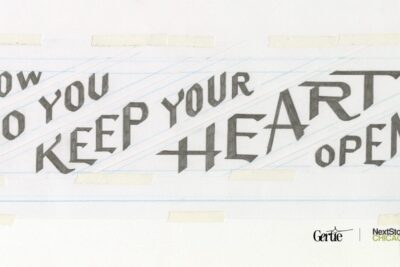 OW
O YOU
KEEP YOUR
HEART
OPEN
Gertie
NextSto
CHICAG